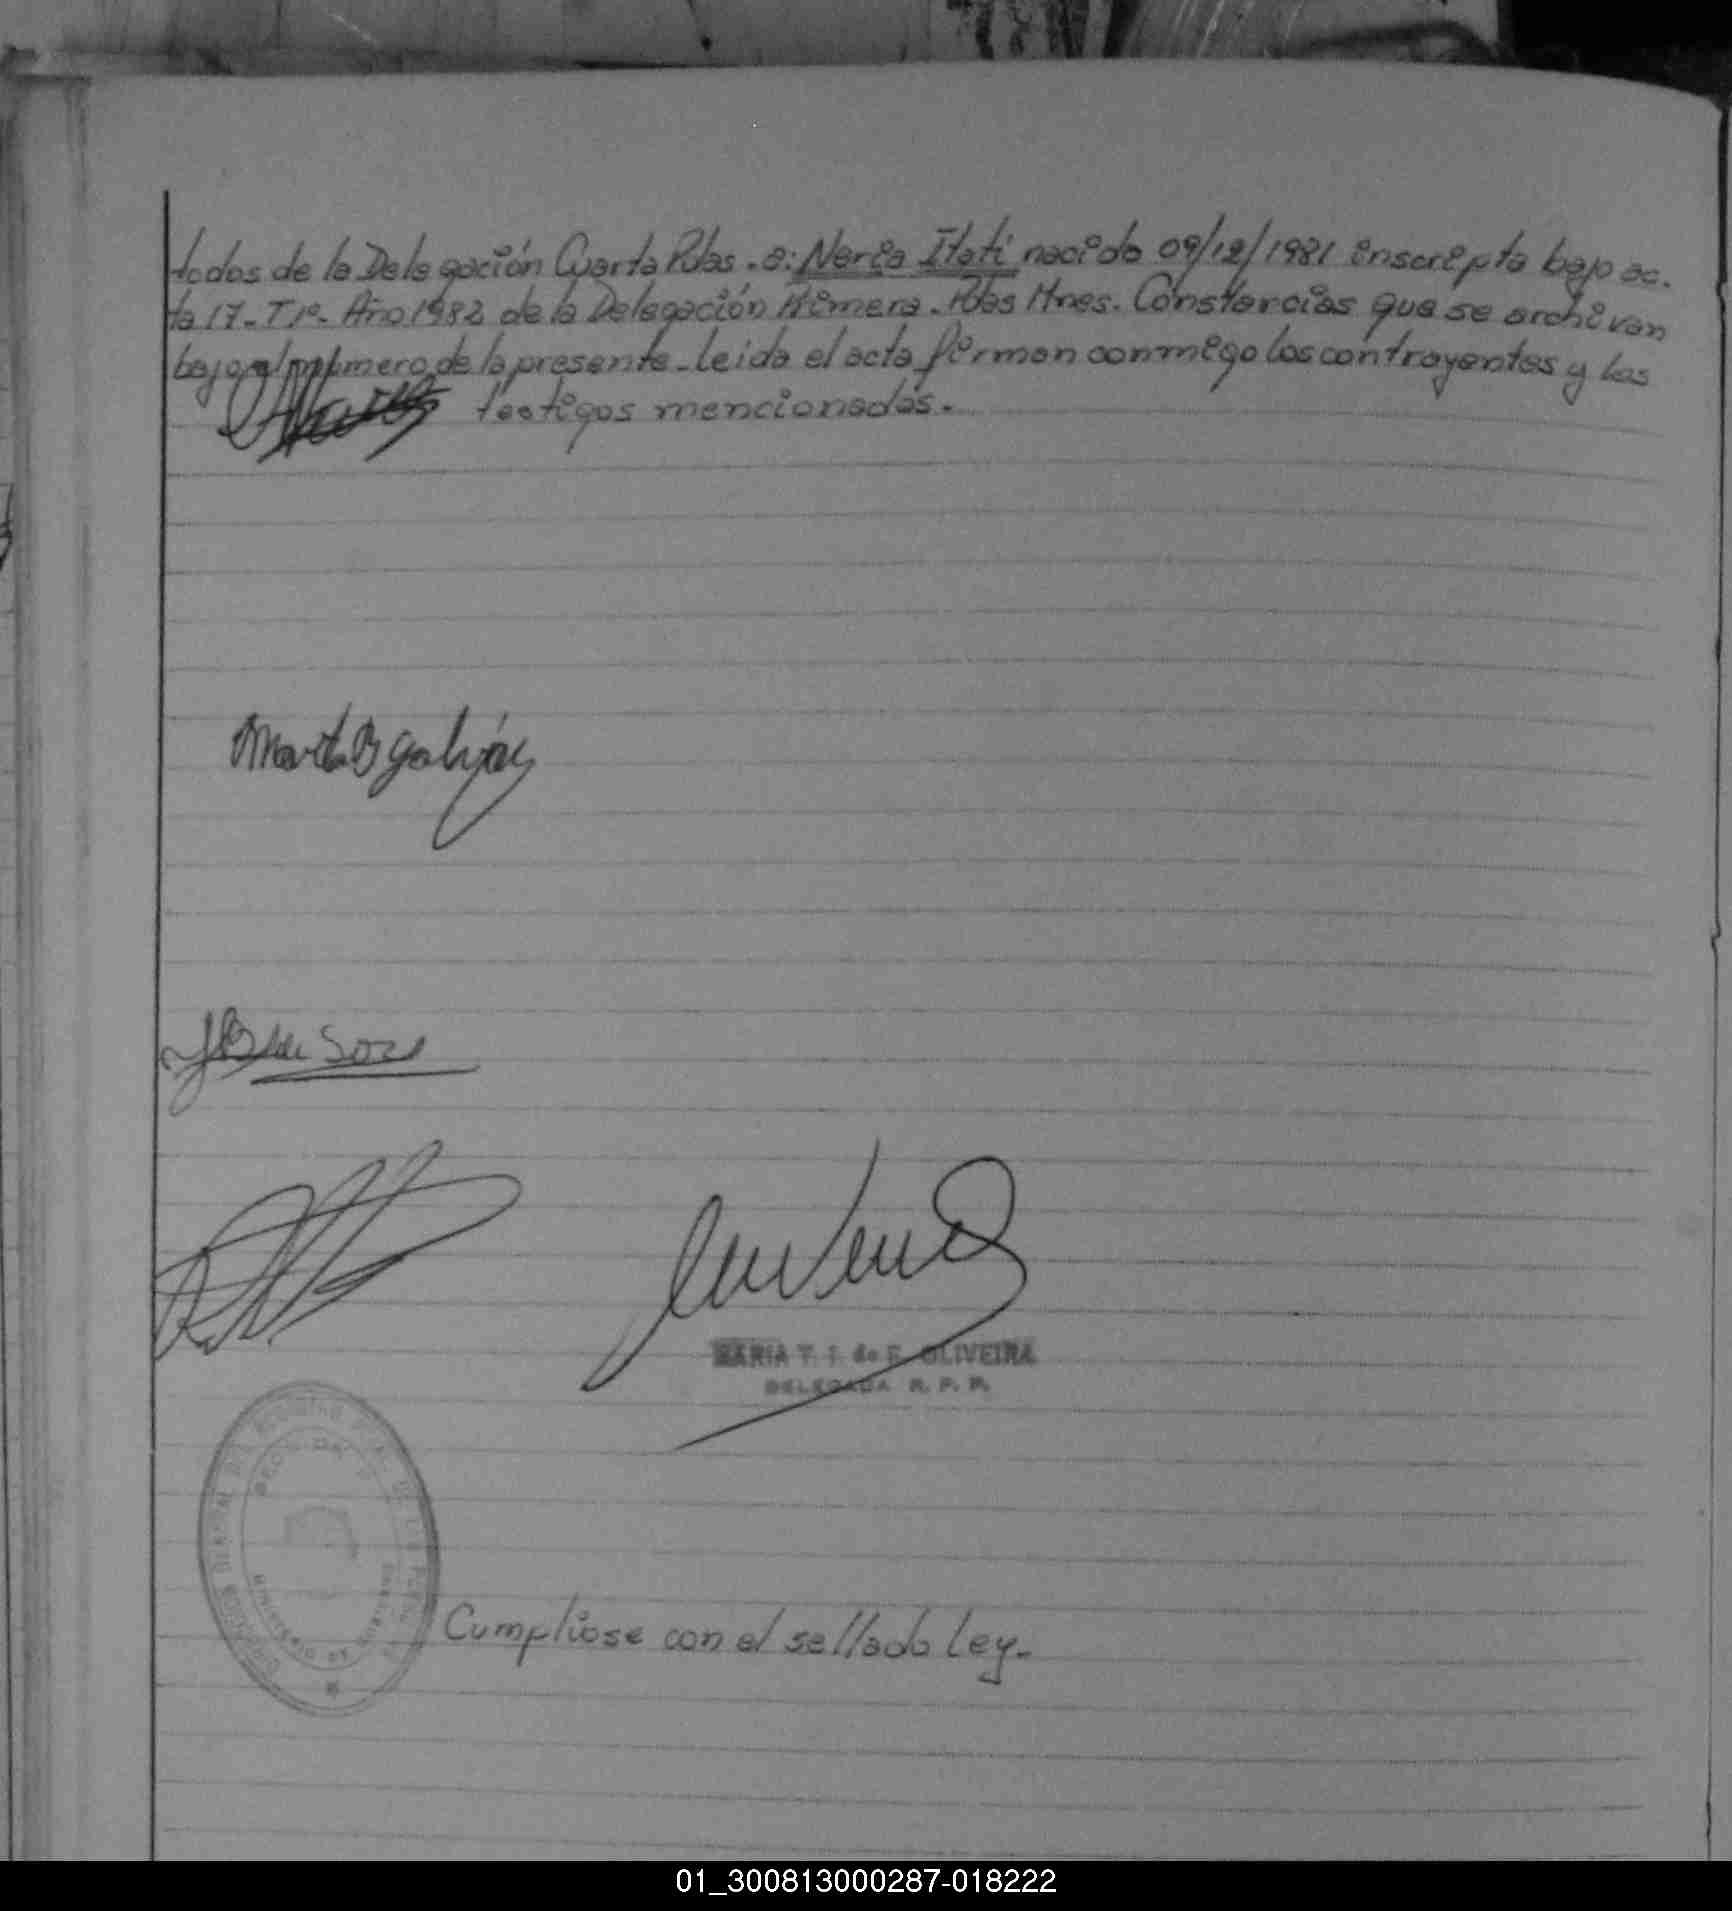 todos de la Delegación Cuarta Pdas. a: Neria Itatí nacida 09/12/1981 inscripta bajo ac.
ta 17- T1º- Año 1982 de la Delegación Primera. Pdas Mnes. Constancias que se archivan
bajo el número de la presente- leida el acta firman conmigo los contrayentes y los
testigos mencionados.-
Marta B Galván
de Soza
MARIA T. I. de F. OLIVEIRA
DELEGADA R. P. P.
Cumpliose con el sellado Ley.-
01_300813000287-018222